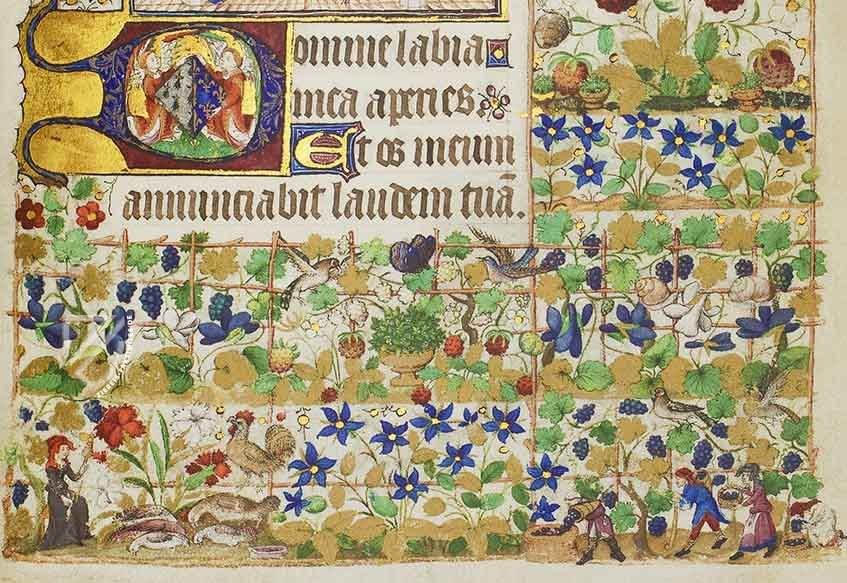 Domine labia
mea aperies
Et os meum
annunciabit laudem tuā.